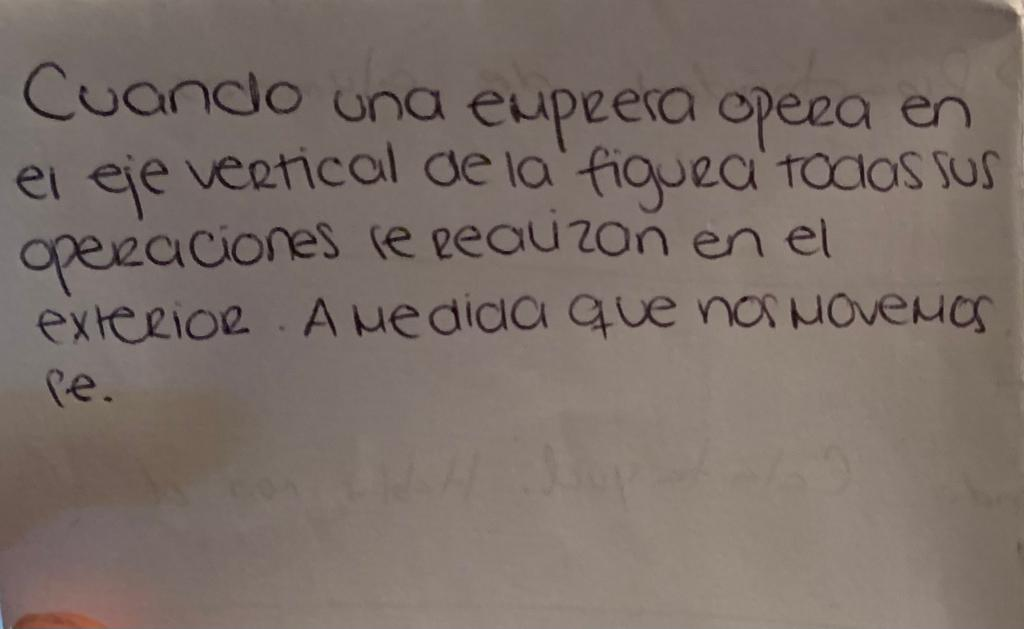 Cuando una empresa opera en
el eje vertical de la figura todas sus
operaciones se realizan en el
exterior. A medida que nos movemos
se.